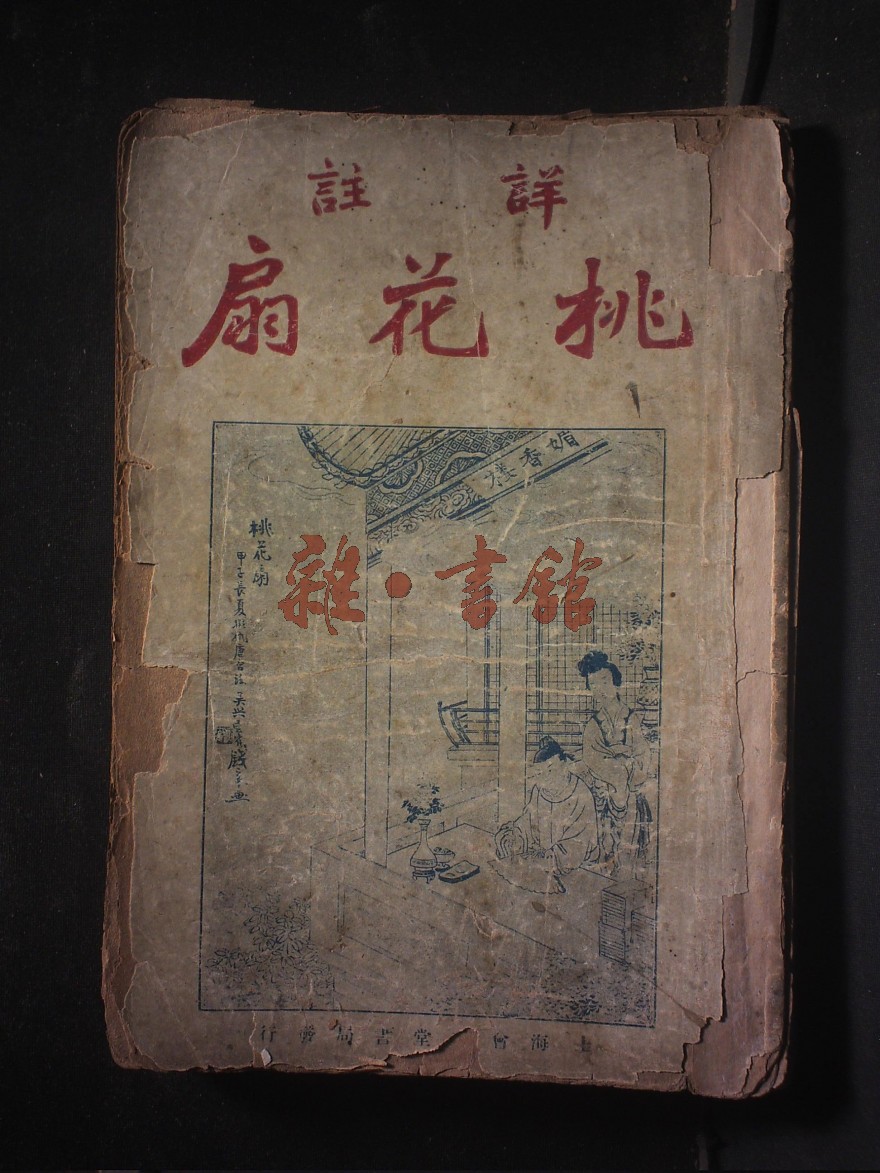 詳註
桃花扇
媚香樓
桃花扇
甲子長夏
吳興
畫
雜·書館
上海會 堂書局發行